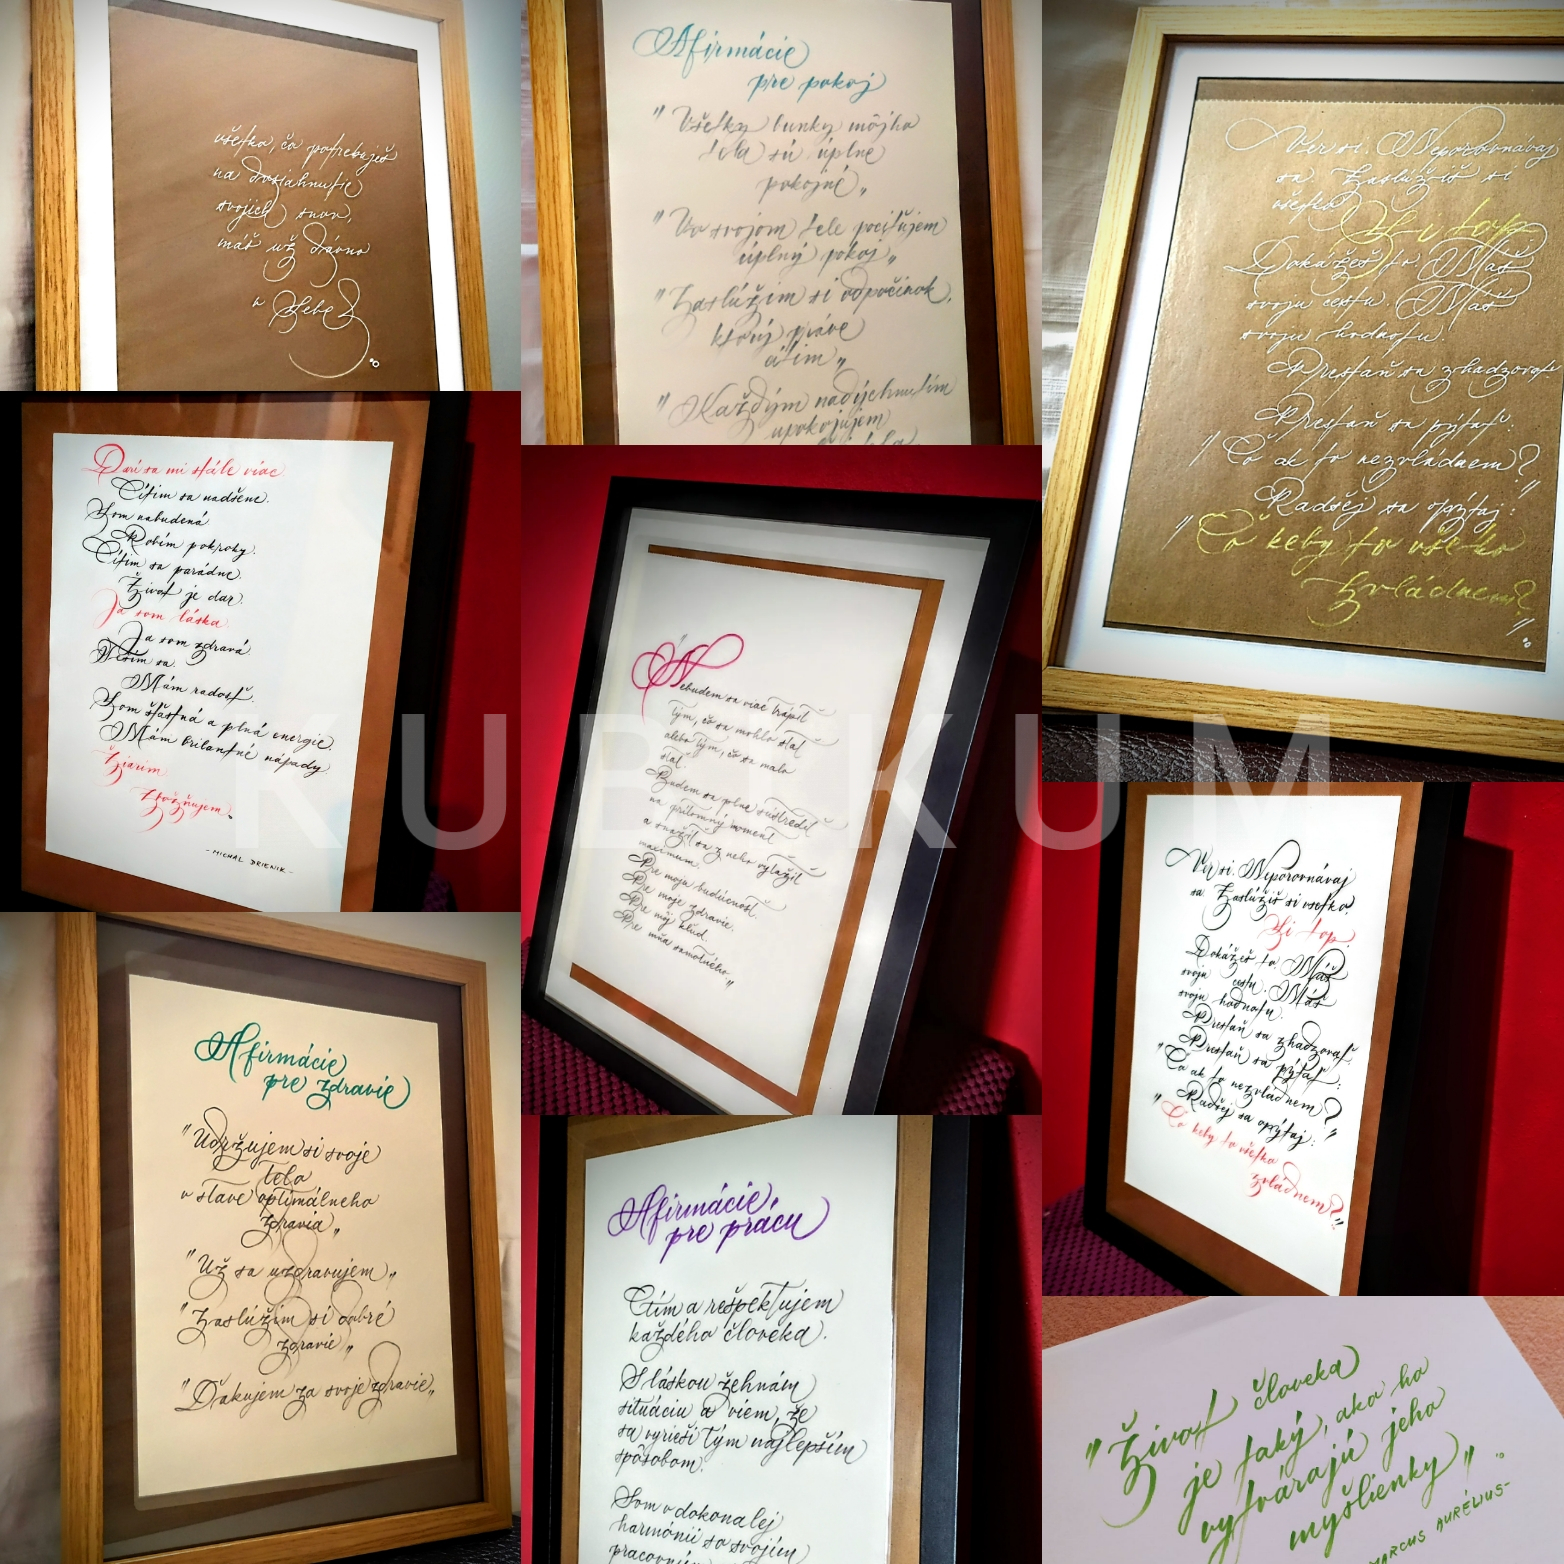 všetko, čo potrebuješ
na dosiahnutie
svojich snov,
máš už dávno
v sebe
Afirmácie
pre pokoj
"Všetky bunky môjho
tela sú úplne
pokojné"
"Vo svojom tele pociťujem
úplný pokoj"
"Zaslúžim si odpočinok,
ktorý práve
cítim"
"Každým nadýchnutím
upokojujem
Ver si. Neporovnávaj
sa. Zaslúžiš si
všetko. Si top
Dokážeš to. Máš
svoju cestu. Máš
svoju hodnotu.
Prestaň sa zhadzovať
Prestaň sa pýtať:
"Čo ak to nezvládnem?"
Radšej sa opýtaj:
"Čo keby to všetko
zvládnem?"
Darí sa mi stále viac.
Cítim sa nadšene.
Som nabudená
Robím pokroky.
Cítim sa parádne.
Život je dar.
Ja som láska
Ja som zdravá
Teším sa.
Mám radosť.
Som šťastná a plná energie.
Mám brilantné nápady
Žiarim
Zbožňujem.
-MICHAL DRIENIK-
Nebudem sa viac trápiť
tým, čo sa mohlo stať
alebo tým, čo sa malo
stať.
Budem sa plne sústrediť
na prítomný moment
a snažiť sa z neho vyťažiť
maximum.
Pre moju budúcnosť.
Pre moje zdravie.
Pre môj kľud.
Pre mňa samotného"
KUBIKUM
Ver si. Neporovnávaj
sa. Zaslúžiš si všetko.
Si top.
Dokážeš to. Máš
svoju cestu. Máš
svoju hodnotu.
Prestaň sa zhadzovať.
Prestaň sa pýtať:
"Čo ak to nezvládnem?"
Radšej sa opýtaj:
"Čo keby to všetko
zvládnem?"
Afirmácie
pre zdravie
"Udržujem si svoje
telo
v stave optimálneho
zdravia"
"Už sa uzdravujem"
"Zaslúžim si dobré
zdravie"
"Ďakujem za svoje zdravie"
Afirmácie
pre prácu
Ctím a rešpektujem
každého človeka.
S láskou žehnám
situáciu a viem, že
sa vyrieši tým najlepším
spôsobom.
Som v dokonalej
harmónii so svojím
"Život človeka
je taký, ako ho
vytvárajú jeho
myšlienky"
MARCUS AURÉLIUS-